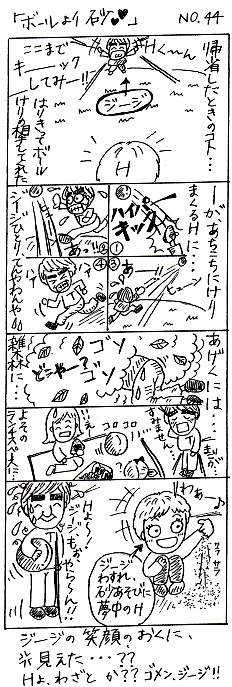 「ボールより砂♥♥」
NO.44
帰省したときのコト…
Hく〜ん
ここまで
キーック
してみー!!
ジージ
はりきってボール
けりの相手してくれた
H
ーがあちこちにけり
まくるHに…
①
ハイパー
キック
②
あっ!!
③
あー
④
ジージひとりてんわんやの
あげくには…
ゴソ
ゴソ
どこやー?
雑木林に…
すみません…
コロコロ
よその
ランチスペースに
わぁ〜
サラサラ
Hよ〜!
ジージと
もぉ
やらんくん!!
ジージ
わすれ、
砂あそびに
夢中のH
ジージの笑顔のおくに、
涙見えた・・・??
Hよ、わざと か?? ゴメン、ジージ!!